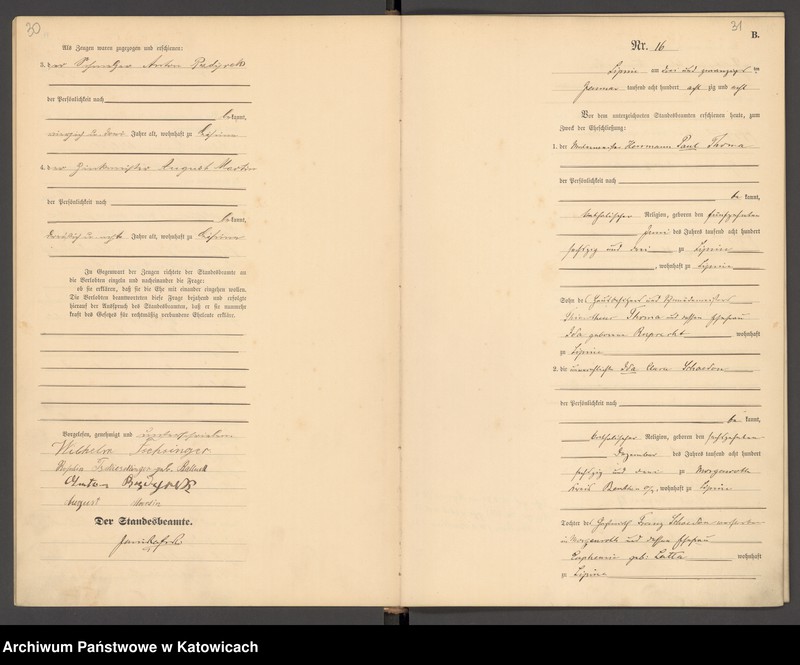 30
Als Zeugen waren zugegegen und erschienen:
3. der Schmelzer Anton
der Persönlichkeit nach
be kannt,
Jahre alt, wohnhaft zu Lipine
4. der Zinkmeister August Martin
der Persönlichkeit nach
be kannt,
Jahre alt, wohnhaft zu Lipine
In Gegenwart der Zeugen richtete der Standesbeamte an
die Verlobten einzeln und nacheinander die Frage:
ob sie erklären, daß sie die Ehe mit einander eingehen wollen.
Die Verlobten beantworteten diese Frage bejahend und erfolgte
hierauf der Ausspruch des Standesbeamten, daß er sie nunmehr
kraft des Gesetzes für rechtmäßig verbundene Eheleute erkläre.
Vorgelesen, genehmigt und unterschrieben
Wilhelm
geb.
Anton
August Martin
Der Standesbeamte.
31
B.
Nr. 16
Lipine am drei und zwanzigsten
Januar tausend acht hundert acht zig und acht
Vor dem unterzeichneten Standesbeamten erschienen heute, zum
Zweck der Eheschließung:
1. der Herrmann Paul Thoma
der Persönlichkeit nach
be kannt,
katholischer Religion, geboren den fünfzehnten
Juni des Jahres tausend acht hundert
sechzig und drei zu Lipine
, wohnhaft zu Lipine
Sohn des und
Thoma und dessen Ehefrau
Ida geborene Ruprecht wohnhaft
zu Lipine
2. die unverehelichte Ida Clara Schaedon
der Persönlichkeit nach
be kannt,
katholischer Religion, geboren den sechzehnten
Dezember des Jahres tausend acht hundert
sechzig und drei zu Morgenroth
Kreis Beuthen O/S, wohnhaft zu Lipine
Tochter des Franz Schaedon
in Morgenroth und dessen Ehefrau
geb: Latta wohnhaft
zu Lipine
Archiwum Państwowe w Katowicach